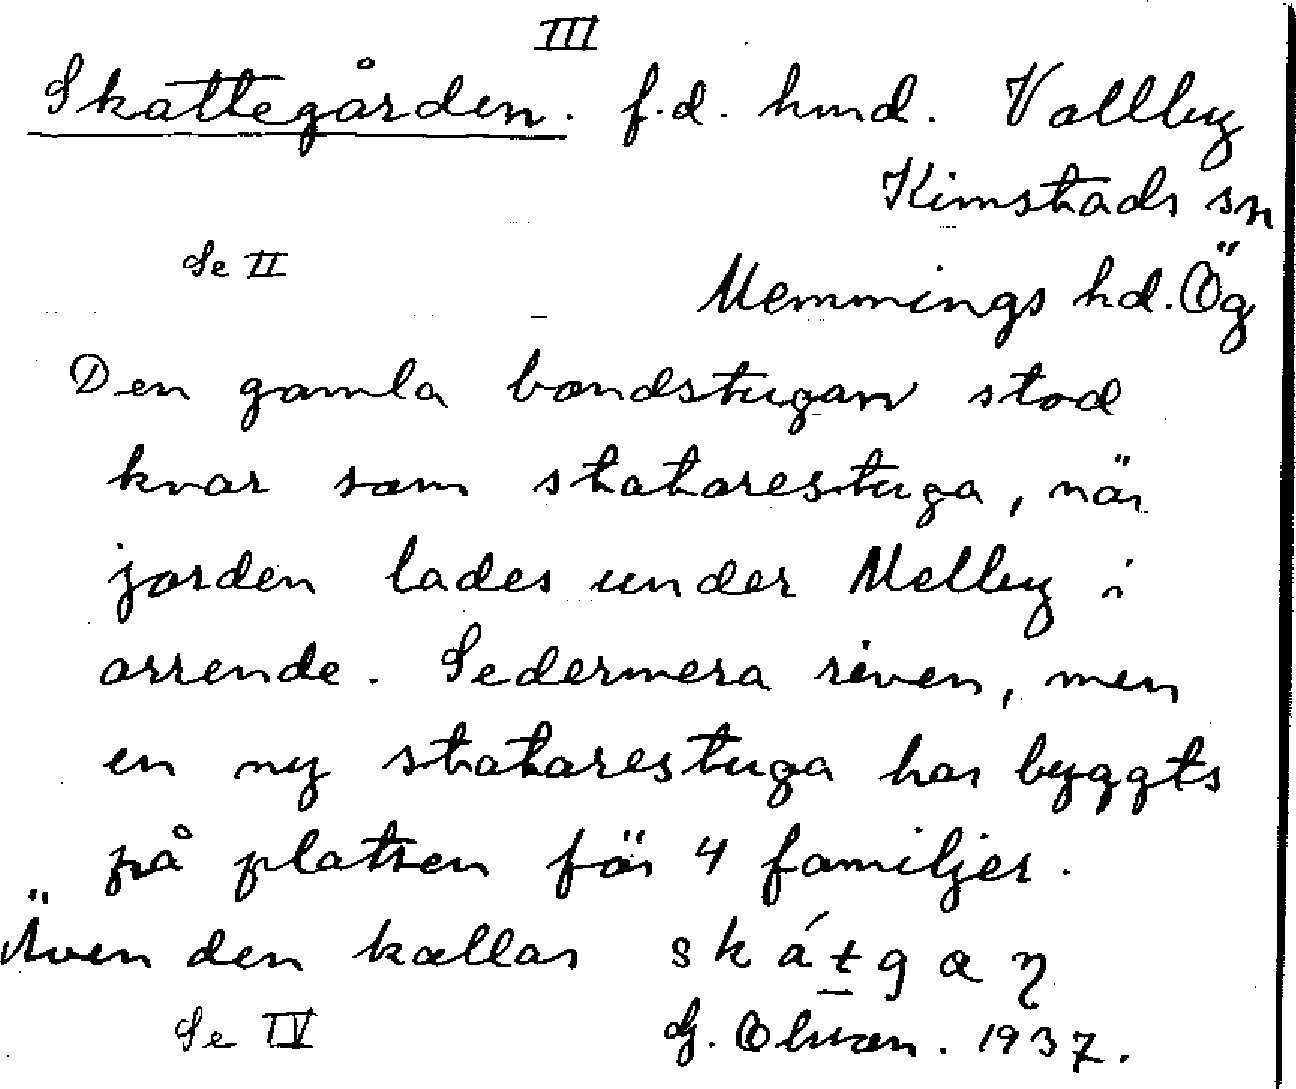 III
Skattegården. f.d. hmd. Vallby
Kimstads sn
Se II
Memmings hd. Ög
Den gamla bondstugan stod
kvar som statarestuga, när
jorden lades under Melby i
arrende. Sedermera riven, men
en ny statarestuga har byggts
på platsen för 4 familjer.
Även den kallas skátgaŋ
Se IV
G. Olsson. 1937.